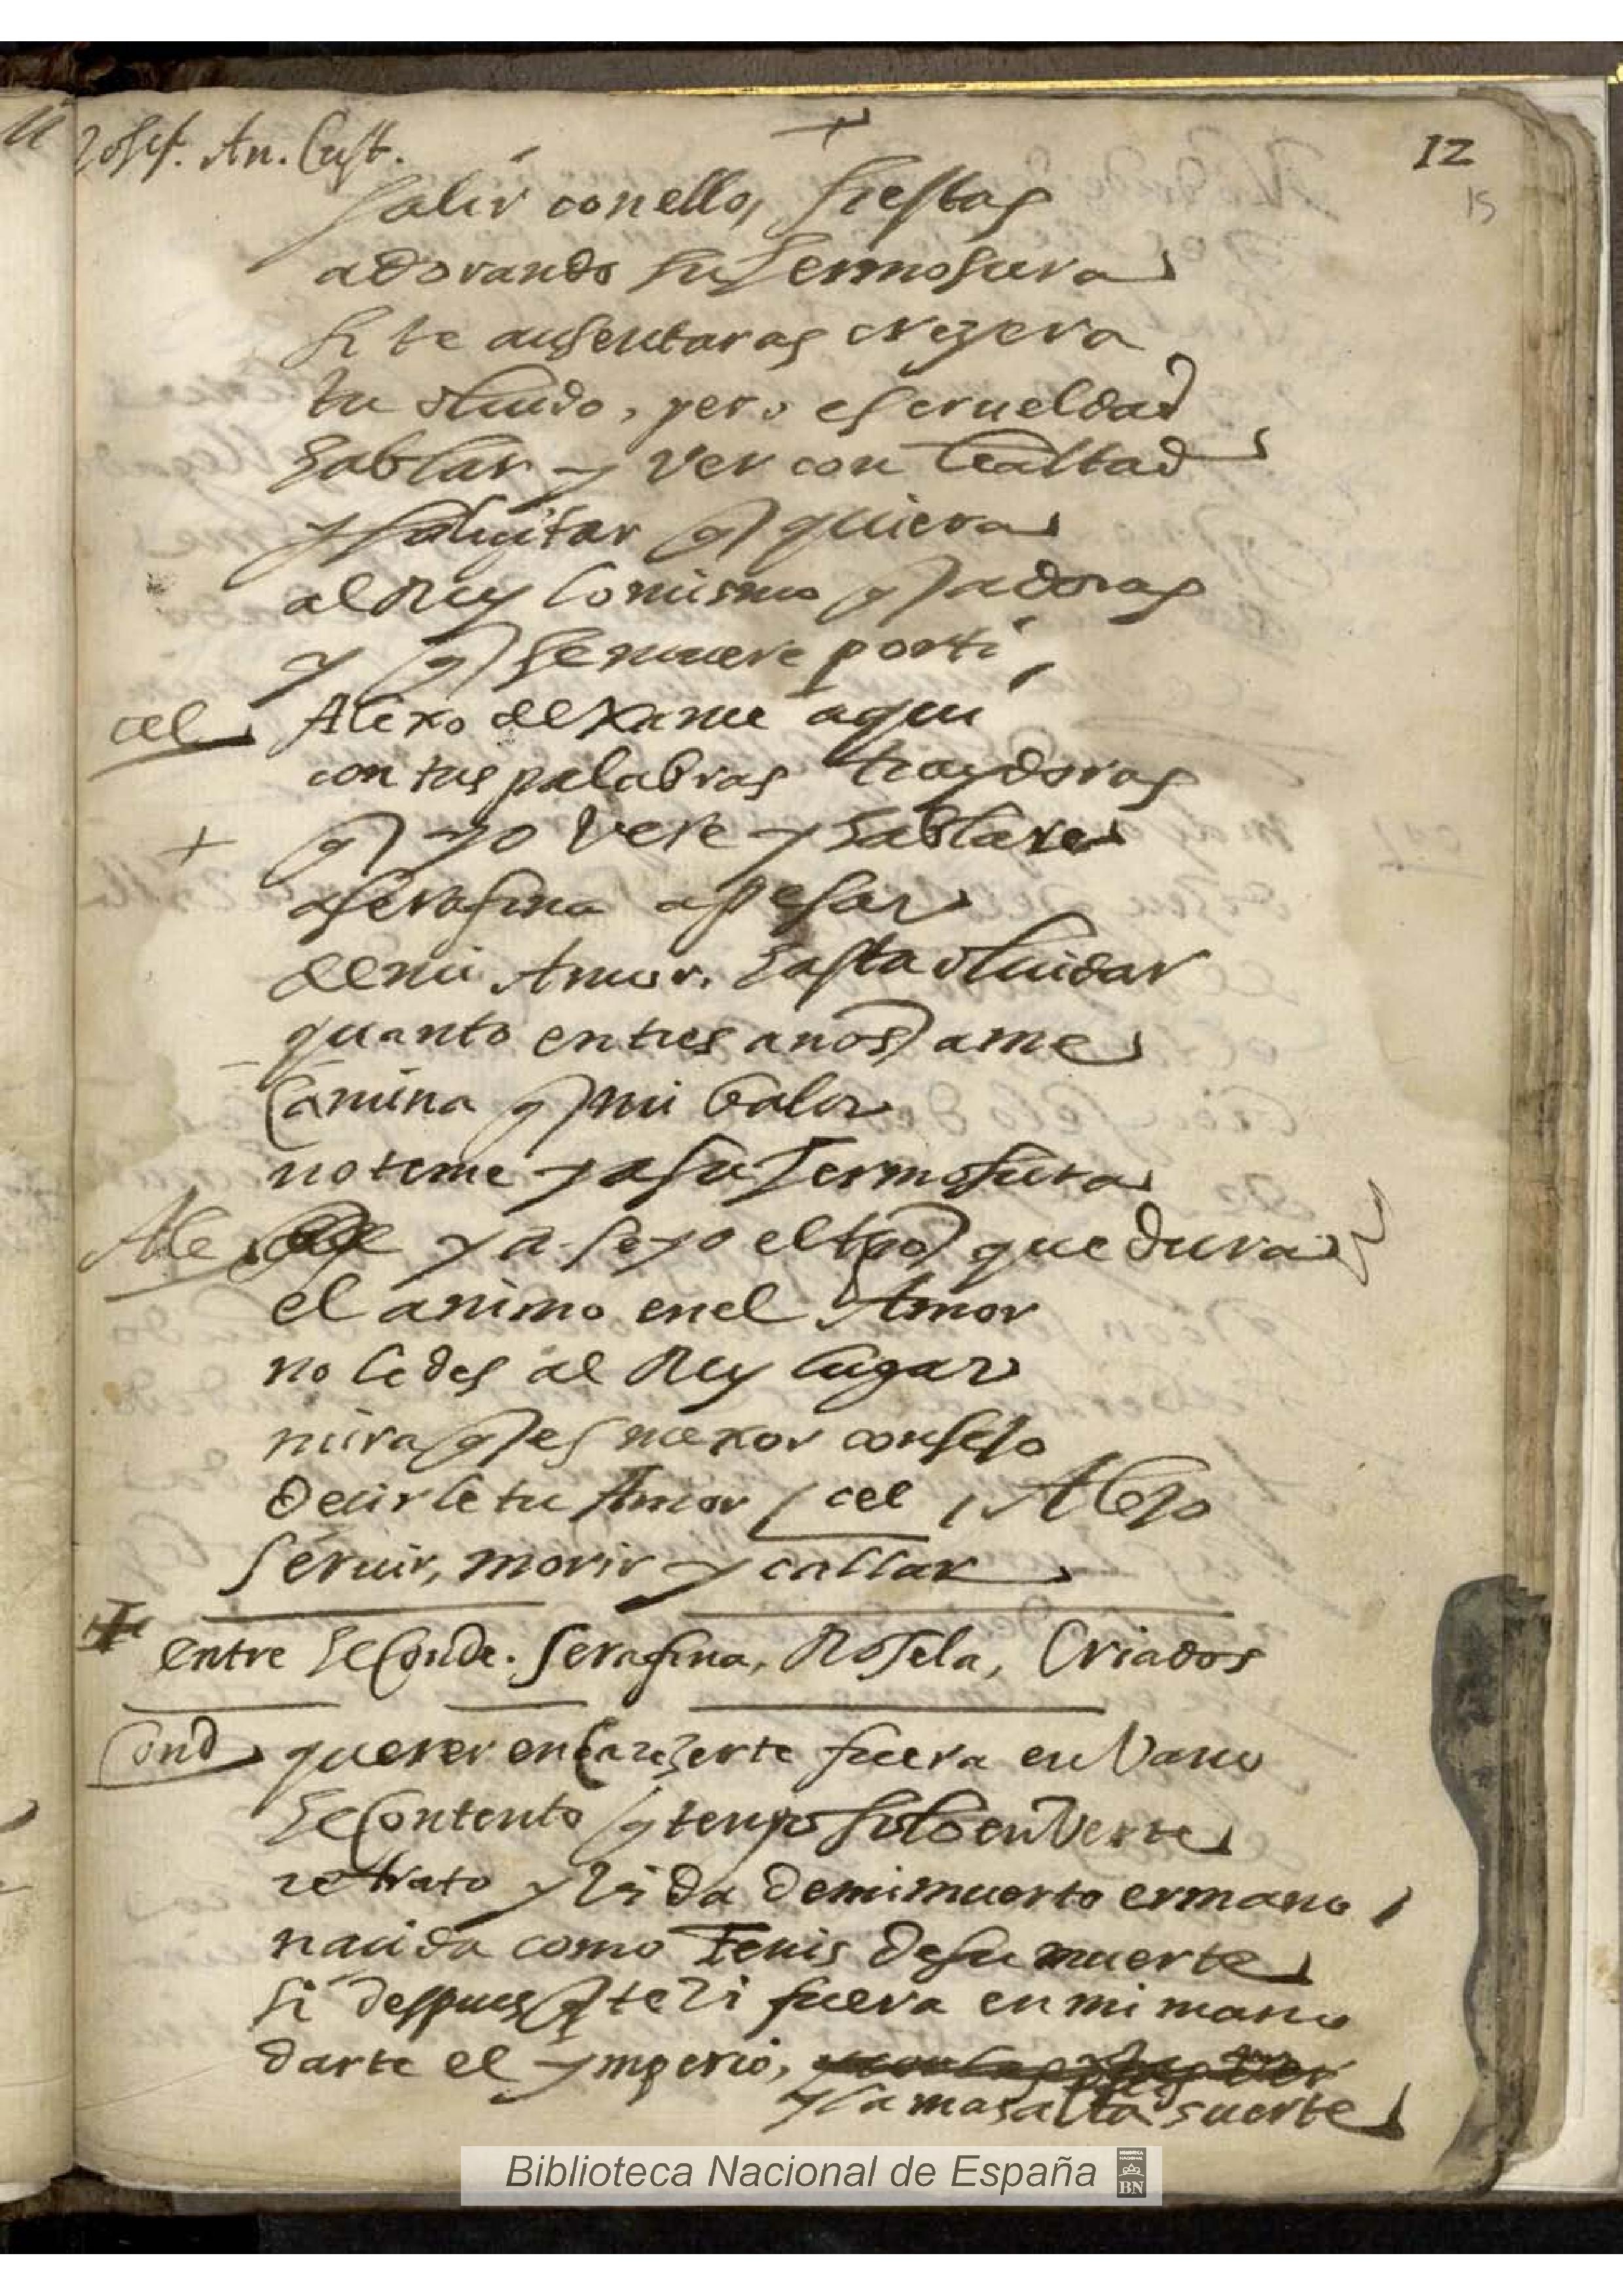 Josef. An. Cust.
12
15
salir con ellos fiestas
adorando su hermosura
si te ausentaras creyera
tu oluido, pero es crueldad
hablar y ver con lealtad
y soliçitar q quiera
al Rey lo mismo q adoras
y q se muere por ti
cel Alexo dexame aqui
con tus palabras traydoras
+ q yo vere y hablare
a serafina a pesar
de mi Amor. hasta oluidar
quanto en tres anos ame
Camina q mi balor
no teme ya su hermosura
Ale ya se yo el tpo que dura
el animo en el Amor
no le des al Rey lugar
mira q es mexor consejo
decirle tu Amor / cel / Alejo
seruir, morir y callar
entre el Conde. serafina, Rosela, Criados
Cond querer encarezerte fuera en Vano
el Contento q tengo solo en Verte
retrato y vida de mi muerto ermano
nacida como Fenis de su muerte
si despues q te vi fuera en mi mano
darte el ymperio,
y la mas alta suerte
Biblioteca Nacional de España
BIBLIOTECA NACIONAL
BN